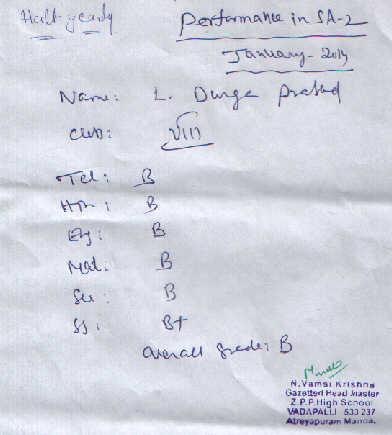 Half-yearly Performance in SA-2
January-2014
Name: L. Durga prasad
Class: VIII
Tel: B
Hin: B
Eng: B
Mat: B
Sci: B
SS: B+
Overall grade: B
N.Vamsi Krishna
Gazetted Head Master
Z.P.P.High School
VADAPALLI 533 237
Atreyapuram Mandal